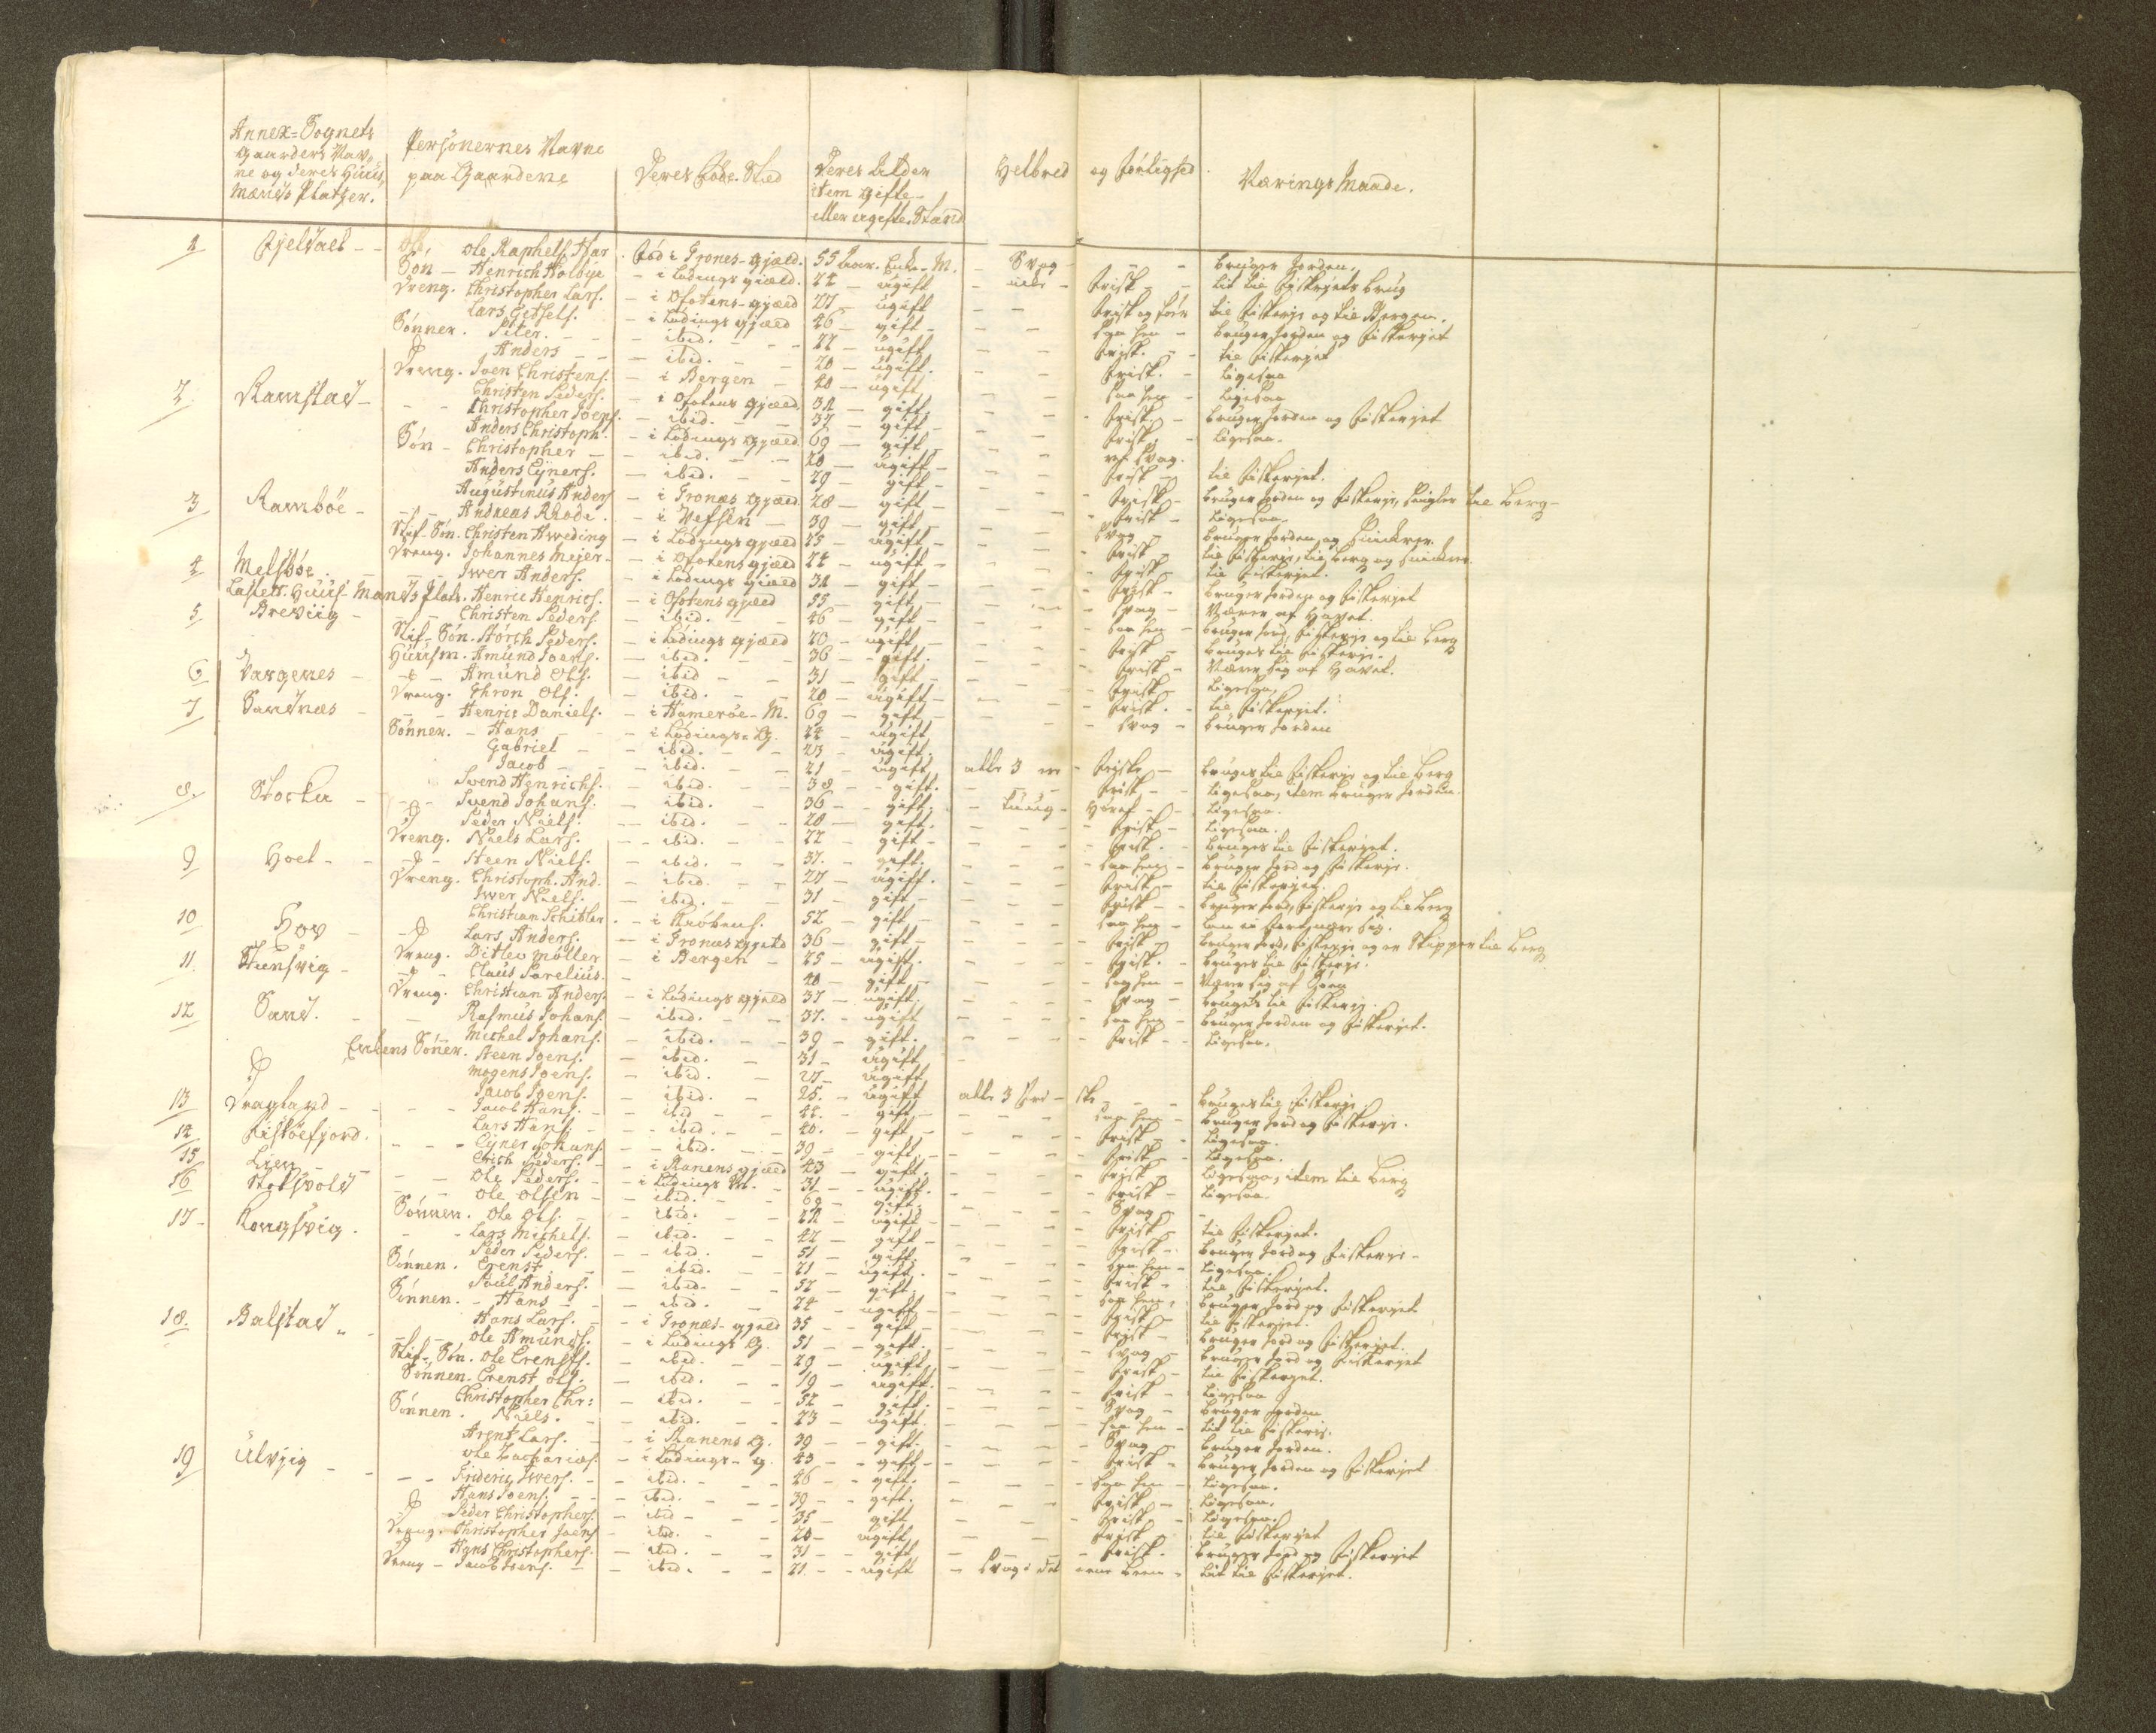 Annex-Sognets Gaarders Navne og deres Huus Mænds Platzer. | Personernes Navne paa Gaardene | Deres Føde-Sted | Deres Alder item gifte eller ugifte Stand | Helbred og Førlighed | Nærings Maade.
1 Fjeldael - Ole Raphels. Har | Fød i Trones-gjæld. | 55 Aar. Enke-M. | Svag | bruger Jorden.
Søn - Henrich Holbye | i Lødings giæld. | 24 - ugift | frisk | lit til fiskeriets brug
Dreng. Christopher Lars. | i Ofotens-gjæld | 27 - ugift | frisk og før | til fiskerie og til Bergen.
Lars Gitsels. | i Lødings gjæld | 46 - gift | saa hen | bruger Jorden og fiskeriet
Sønner. Peter. | ibid. | 22 - ugift | frisk. | til fiskeriet
Anders | ibid. | 20 - ugift. | frisk. | ligesaa
Dreng. Joen Christens. | i Bergen | 40 - ugift | saa hen | ligesaa
2. Ramstad - Christen Peders. | i Ofotens gjæld. | 32 - gift. | frisk | bruger Jorden og fiskeriet
Christopher Joens. | ibid. | 37 - gift | frisk | ligesaa.
Anders Christoph. | i Lødings gjæld | 69 - gift | svag.
Søn - Christopher | ibid. | 20 - ugift | frisk | til fiskeriet.
Anders Ejners. | ibid. | 29 - gift | frisk | bruger Jorden og fiskerie, til berg
3 Rambøe - Augustinus Anders | i Trones gjæld | 28 - gift | frisk | ligesaa.
Andreas Rhode. | i Vefsen | 39 - gift | svag | bruger Jorden og
Stif-Søn. Christen Hweding | i Lødings gjæld | 25 - ugift | frisk | til fiskerie, til berg og
Dreng. Johannes Mejer | i Ofotens gjæld | 24 - ugift | frisk | til fiskeriet.
4 Melsbøe. Iwer Anders. | i Lødings giæld | 32 - gift | frisk | bruger Jorden og fiskeriet
Huus-Mands Plads. Henric Henrics. | i Ofotens gjæld | 55 - gift | svag | Nærer af Havet.
5 Brevüg - Christen Peders. | ibid. | 46 - gift | saa hen | bruger Jord, fiskerie og til berg
Stif-Søn. Störch Peders. | i Lødings gjæld | 20 - ugift | frisk | bruges til fiskerie.
Huusm. Amund Joens. | ibid. | 36 - gift. | frisk | Nærer sig af Havet.
6 Vargenes - Amund Ols. | ibid | 31 - gift | frisk | ligesaa
Dreng. Thron Ols. | ibid. | 20 - ugift | frisk. | til fiskeriet.
7 Sandnæs - Henric Daniels. | i Hamerøe-M. | 69 - gift | svag | bruger Jorden
Sønner. - Hans | i Lødings-G. | 24 - ugift
Gabriel | ibid. | 23 - ugift.
Jacob | ibid. | 21 - ugift | alle 3 ere friske | bruges til fiskerie og til berg
8. Stocka - Swend Henrichs. | ibid. | 38 - gift. | frisk | ligesaa, item bruger Jorden.
Swend Johans. | ibid. | 36 - gift. | tung-høret | ligesaa.
Peder Niels. | ibid. | 28 - gift. | frisk | ligesaa.
Dreng. Niels Lars. | ibid. | 22 - gift | frisk. | bruges til fiskeriet.
9 Hoel - Steen Niels. | ibid. | 37. - gift. | saa hen | bruger Jord og fiskerie.
Dreng. Christoph. And. | ibid. | 27 - ugift. | frisk | til fiskeriet.
Iwer Niels. | ibid. | 31 - gift | frisk | bruger Jord, fiskerie og til berg
10 Hov - Christian Schibler. | i Kiøbenh. | 52 - gift | saa hen
Lars Anders. | i Trones gjæld | 36 - gift | frisk | bruger Jord, fiskerie og er Skipper til berg
11. Steensvig - Dreng. Ditlev Møller | i Bergen | 25 - ugift. | frisk. | bruges til fiskerie.
Claus Parelius. | 40 - gift | saa hen | Nærer sig af
Dreng. Christian Anders. | i Lødings gjæld | 37 - ugift. | svag | bruges til fiskerie.
12 Sand. Rasmus Johans. | ibid. | 37. - ugift | saa hen | bruger Jorden og fiskeriet.
Michel Johans. | ibid. | 39 - gift. | frisk | ligesaa.
Enkens Sønner. Steen Joens. | ibid. | 31 - ugift
Mogens Joens. | ibid. | 27 - ugift
Jacob Joens. | ibid. | 25. - ugift | alle 3 friske | bruges til fiskerie.
13 Dragland - Jacob Hans. | ibid | 42. - gift | saa hen | bruger Jord og fiskerie.
14 Fiskefjord. Lars Hans. | ibid. | 40. - gift | frisk | ligesaa.
15 Lien - Ejner Johans. | ibid. | 39 - gift. | frisk | ligesaa.
16 Stokvold - Erich Peders. | i Ranens gjæld | 43 - gift. | frisk | ligesaa, item til berg
Ole Peders. | i Lødings M. | 31 - ugift. | frisk | ligesaa.
Ole Olsen | ibid. | 69 - gift. | Svag
Sønnen. Ole Ols. | ibid. | 22 - ugift | frisk | til fiskeriet.
17 - Kongsvig. Lars Michels. | ibid. | 42 - gift | frisk | bruger Jord og fiskerie
Peder Peders. | ibid. | 51 - gift | saa hen | ligesaa.
Sønnen. Erenst | ibid. | 21 - ugift. | frisk | til fiskeriet.
Poul Anders. | ibid. | 52 - gift. | saa hen, | bruger Jord og fiskeriet
Sønnen. - Hans | ibid. | 24 - ugift | frisk | til fiskeriet.
18. Balstad - Hans Lars. | i Trones-gjæld | 35 - gift | frisk | bruger Jord og fiskeriet.
Ole Amunds. | i Lødings G. | 51 - gift. | svag | bruger Jord og fiskeriet
Stif-Søn. Ole Erensts. | ibid. | 29 - ugift | frisk | til fiskeriet.
Sønnen. Erenst Ols. | ibid. | 19 - ugift. | frisk | ligesaa
Christopher Chr: | ibid. | 52 - gift. | Svag | bruger Jorden
Sønnen. Niels. | ibid. | 23 - ugift. | saa hen | lit til fiskerie.
Arent Lars. | i Ranens G. | 39 - gift. | Svag | bruger Jorden.
19 Ulvjig - Ole Zacharias. | i Lødings-G. | 43 - gift | frisk | bruger Jorden og fiskeriet
Frideric Iwers. | ibid. | 46 - gift. | saa hen | ligesaa.
Hans Joens. | ibid. | 39 - gift. | frisk | ligesaa.
Peder Christophers. | ibid | 35 - gift | frisk | ligesaa.
Dreng. Christopher Joens | ibid. | 20 - ugift | frisk | til fiskeriet
Hans Christophers. | ibid. | 31 - gift | frisk. | bruger Jord og fiskeriet
Dreng - Jacob Joens. | ibid. | 21. - ugift | svag i det eene been | lit til fiskeriet.